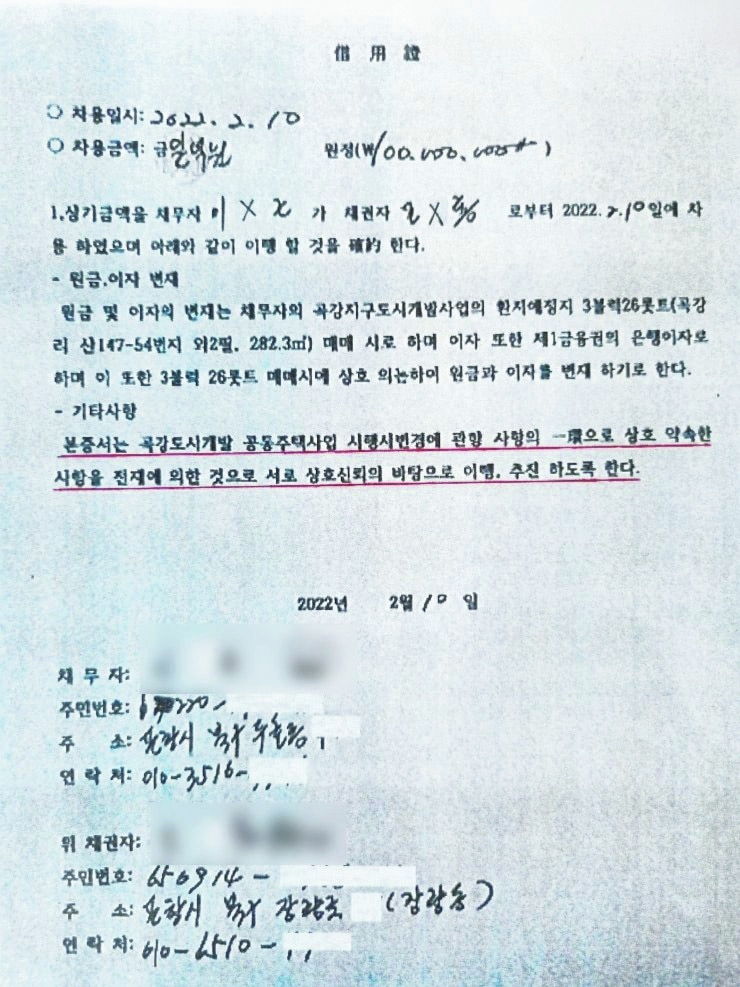 借 用 證
○ 차용일시: 2022. 2. 10
○ 차용금액: 금일억님 원정(₩100.000.000#)
1.상기금액을 채무자 이 X X 가 채권자 X 로부터 2022. 2. 10일에 차
용 하였으며 아래와 같이 이행 할 것을 確約 한다.
- 원금.이자 변재
원금 및 이자의 변재는 채무자의 곡강지구도시개발사업의 환지예정지 3블럭26롯트(곡강
리 산147-54번지 외2필. 282.3㎡) 매매 시로 하며 이자 또한 제1금융권의 은행이자로
하며 이 또한 3블럭 26롯트 매매시에 상호 의논하이 원금과 이자를 변재 하기로 한다.
- 기타사항
본증서는 곡강도시개발 공동주택사업 시행사변경에 관항 사항의 一環으로 상호 약속한
사항을 전재에 의한 것으로 서로 상호신뢰의 바탕으로 이행. 추진 하도록 한다.
2022년 2월 10 일
채 무 자:
주민번호: 220-
주 소: 포항시 북구 두호동
연 락 처: 010-3516-
위 채권자:
주민번호: 650914-
주 소: 포항시 북구 장량로 (장량동)
연 락 처: 010-6510-